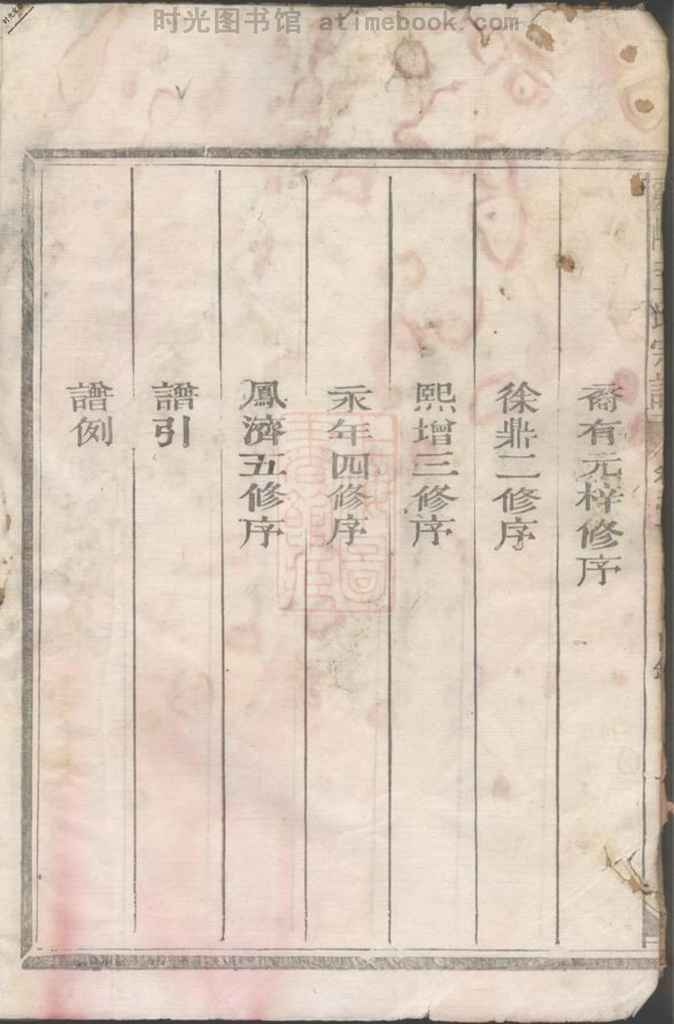 时光图书馆 atimebook.com
喬有元梓修序
徐鼎二修序
熙增三修序
永年四修序
鳳濟五修序
譜引
譜例